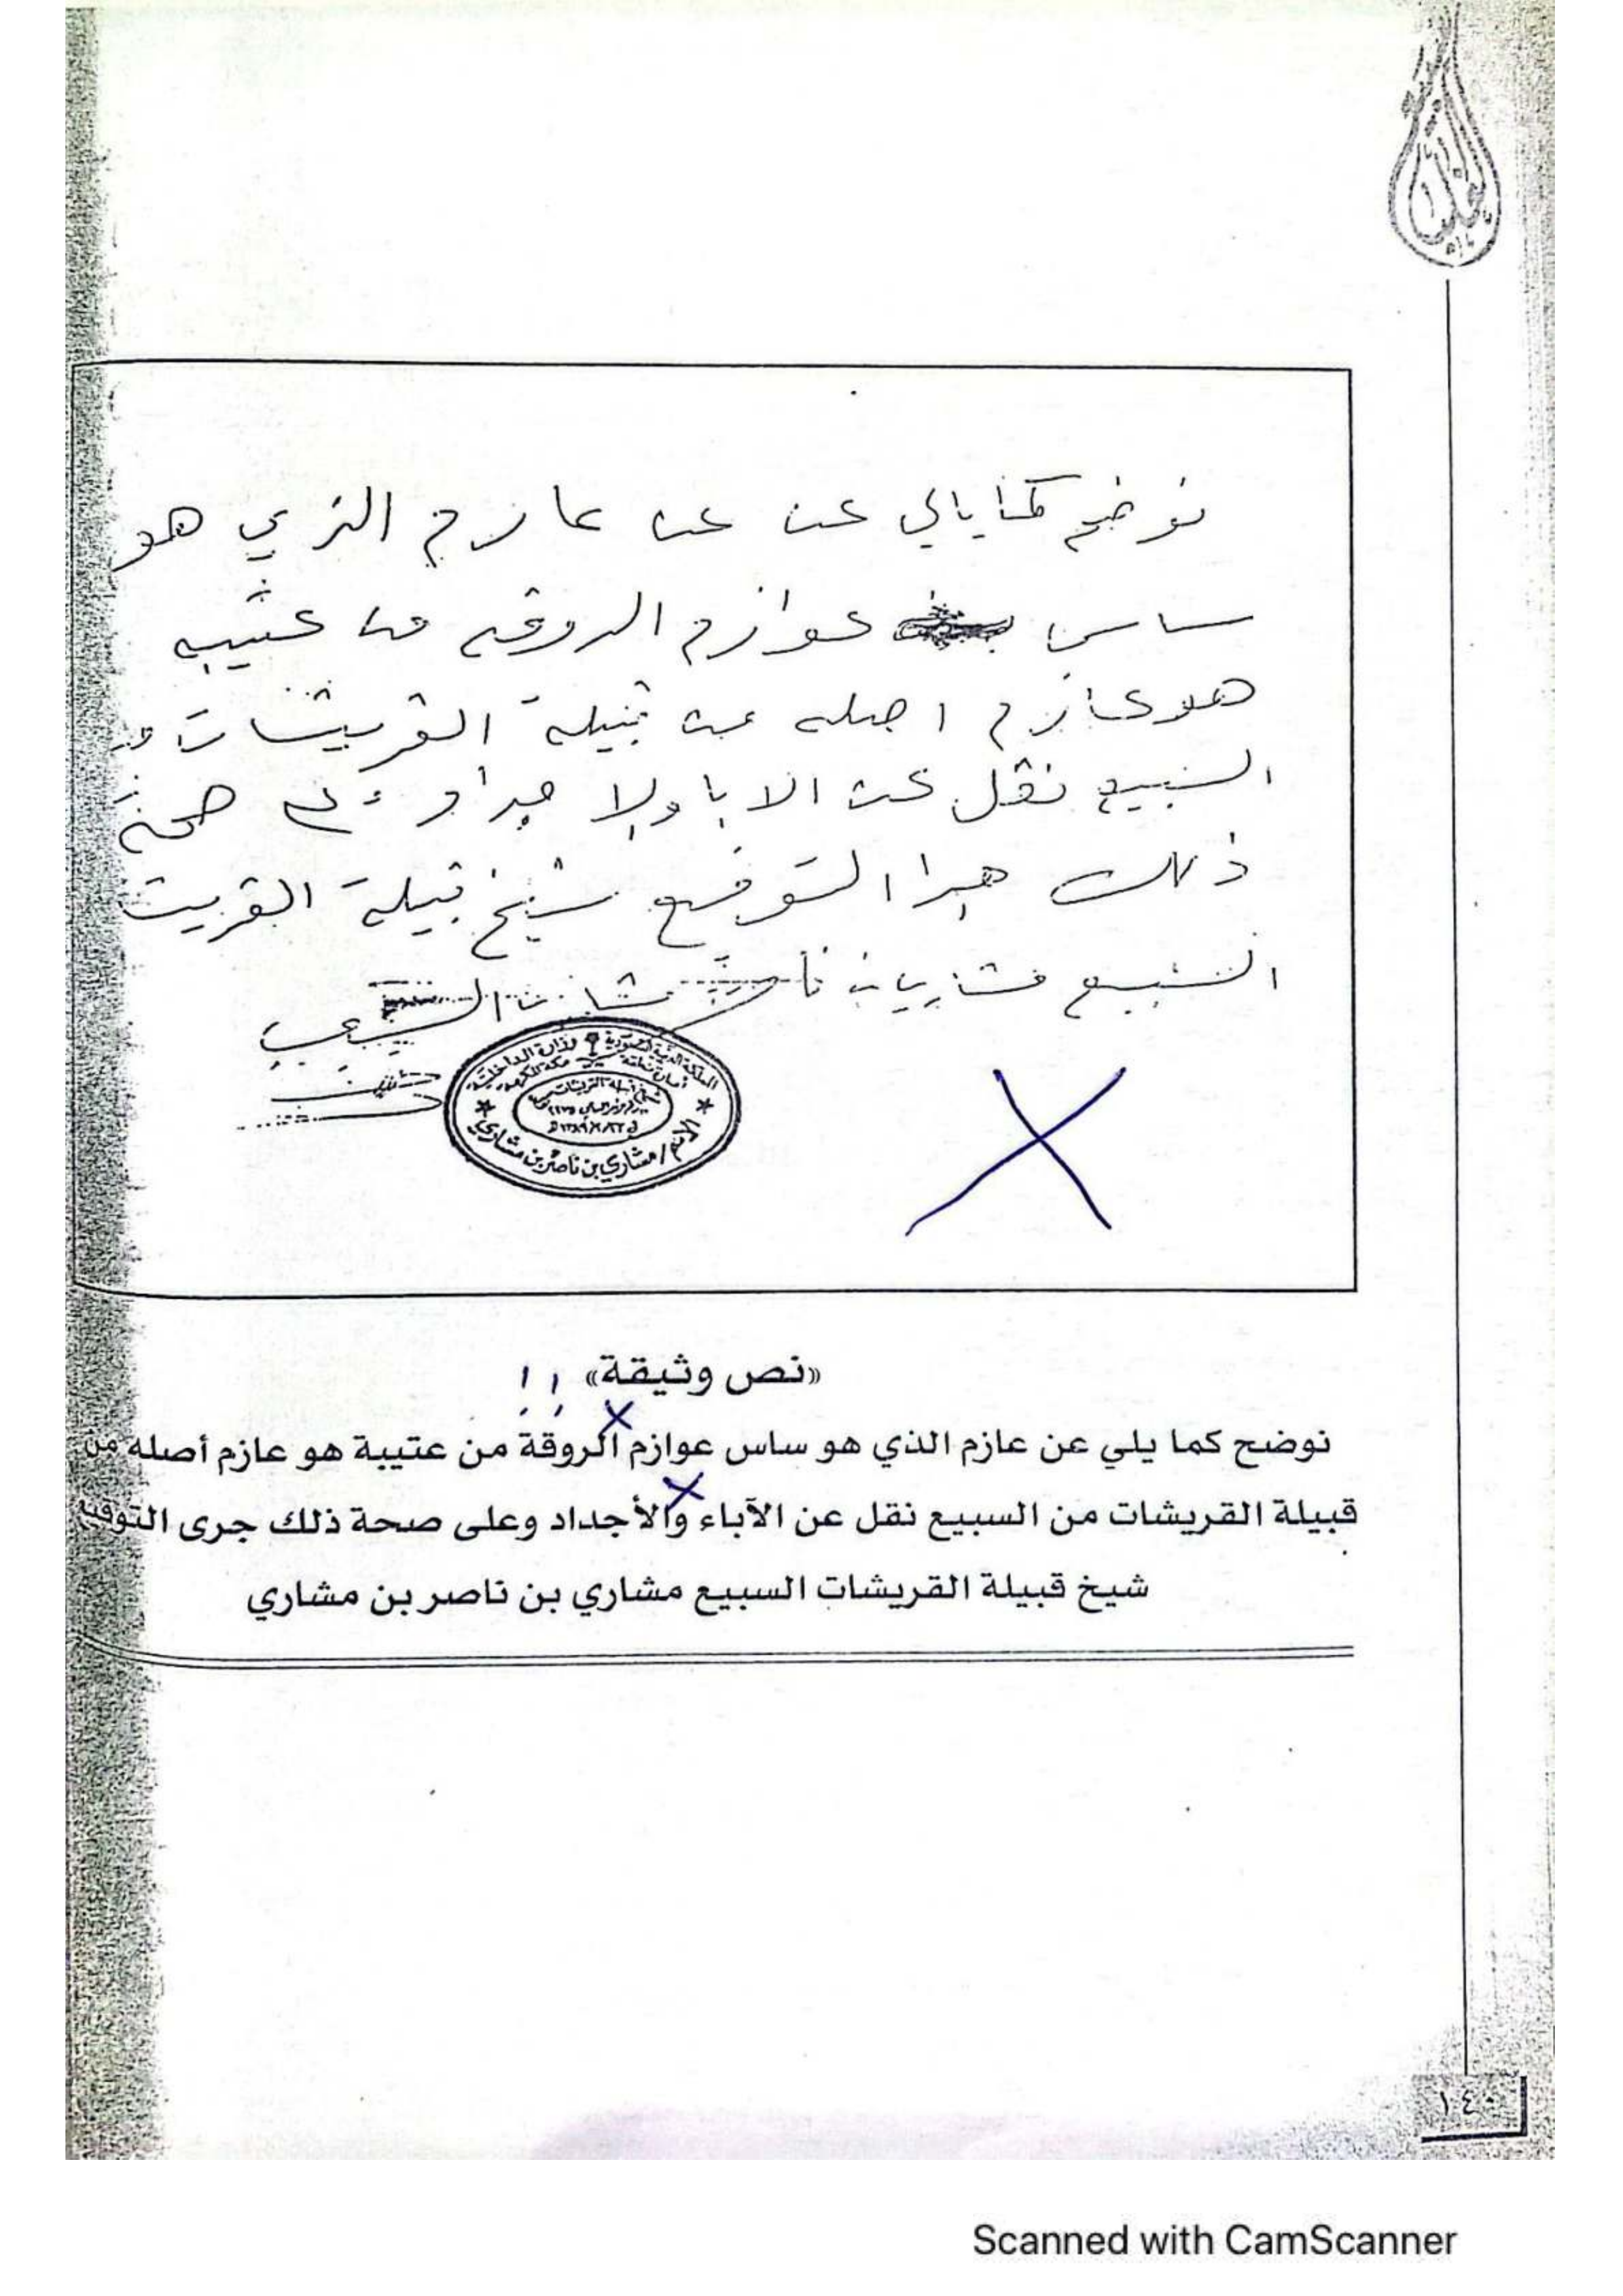 نوضح كمايالي عن عن عازم الذي هو
ساس عوازم الروقه من عتيبه
هو عازم اصله من قبيلة القريشات من
السبيع نقل عن الابا والا جداد وعلى صحة
ذلك جرا التوقيع شيخ قبيلة القريشت
السبيع مشاري بن
المملكة العربية السعودية وزارة الداخلية
الاسم / مشاري بن ناصر بن مشاري
«نص وثيقة» !!
نوضح كما يلي عن عازم الذي هو ساس عوازم الروقة من عتيبة هو عازم أصله من
قبيلة القريشات من السبيع نقل عن الآباء والأجداد وعلى صحة ذلك جرى التوقيع
شيخ قبيلة القريشات السبيع مشاري بن ناصر بن مشاري
١٤٠
Scanned with CamScanner